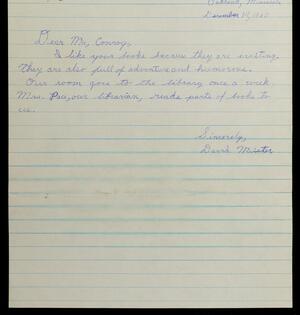 December 19, 1960
Dear Mr. Conroy,
I like your books because they are exciting.
They are also full of adventure and humorous.
Our room goes to the library once a week.
Mrs. our librarian, reads parts of books to
us.
Sincerely,
David